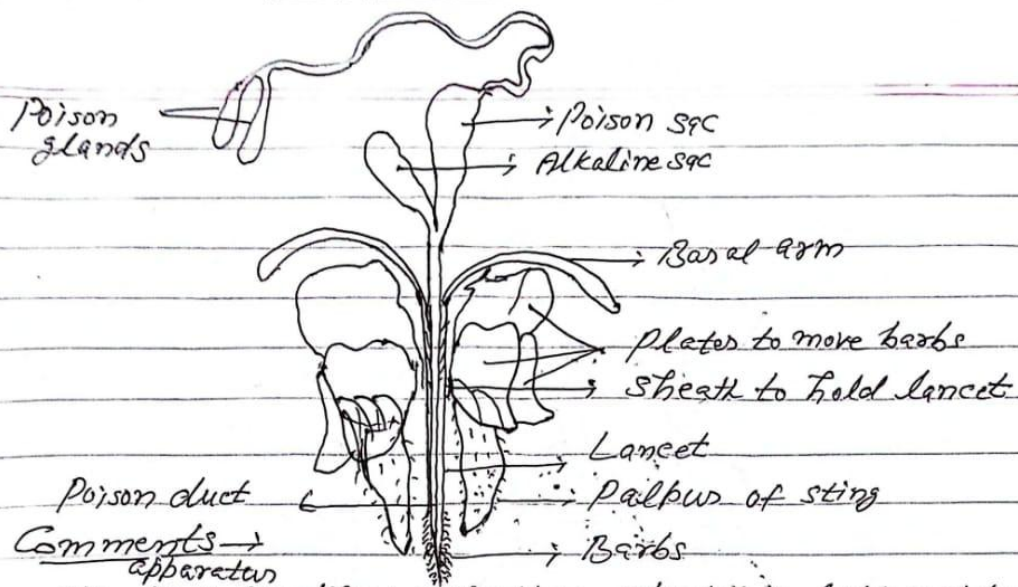 Poison
glands
Poison sac
Alkaline sac
Basal arm
Plates to move barbs
Sheath to hold lancet
Lancet
Poison duct
Palpus of sting
Comments →
apparatus
Barbs